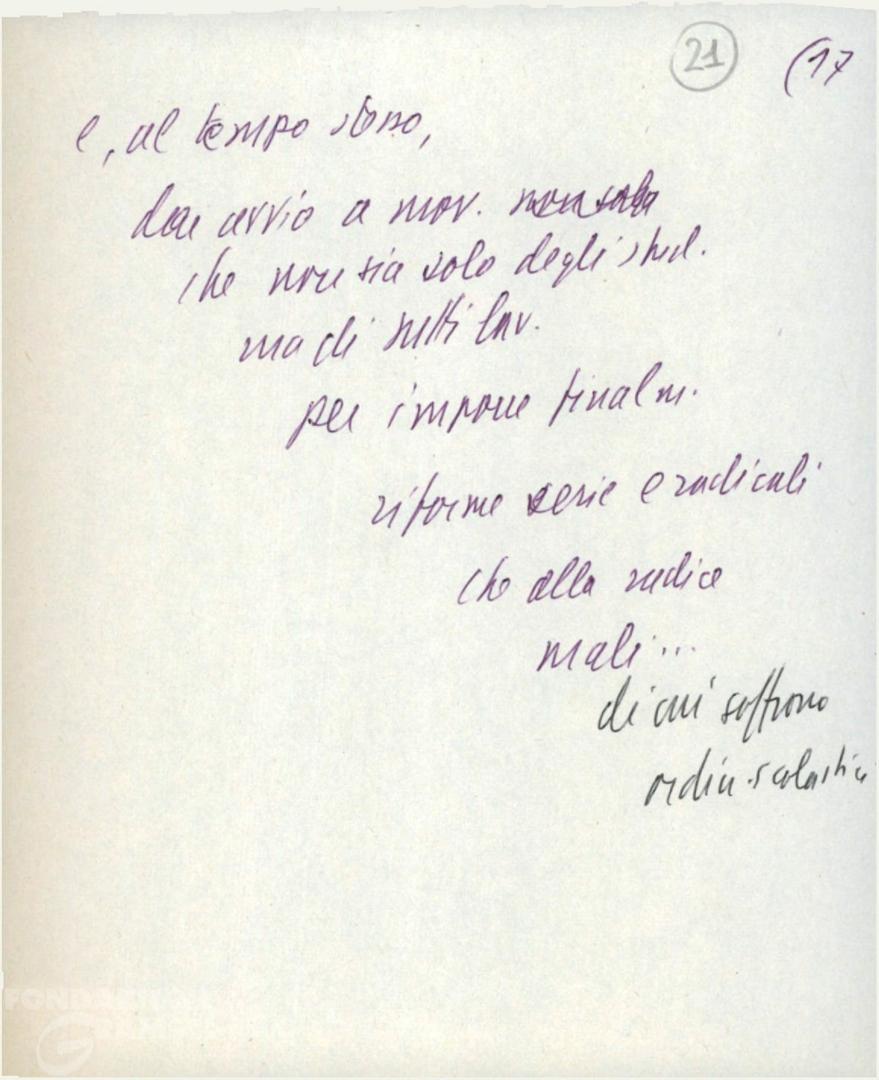 21 (17
e, al tempo stesso,
dare avvio a mov. non solo
che non sia solo degli stud.
ma di tutti lav.
per imporre finalm.
riforme serie e radicali
che alla radice
mali...
di cui soffrono
ordin. scolastici
FONDAZIONE